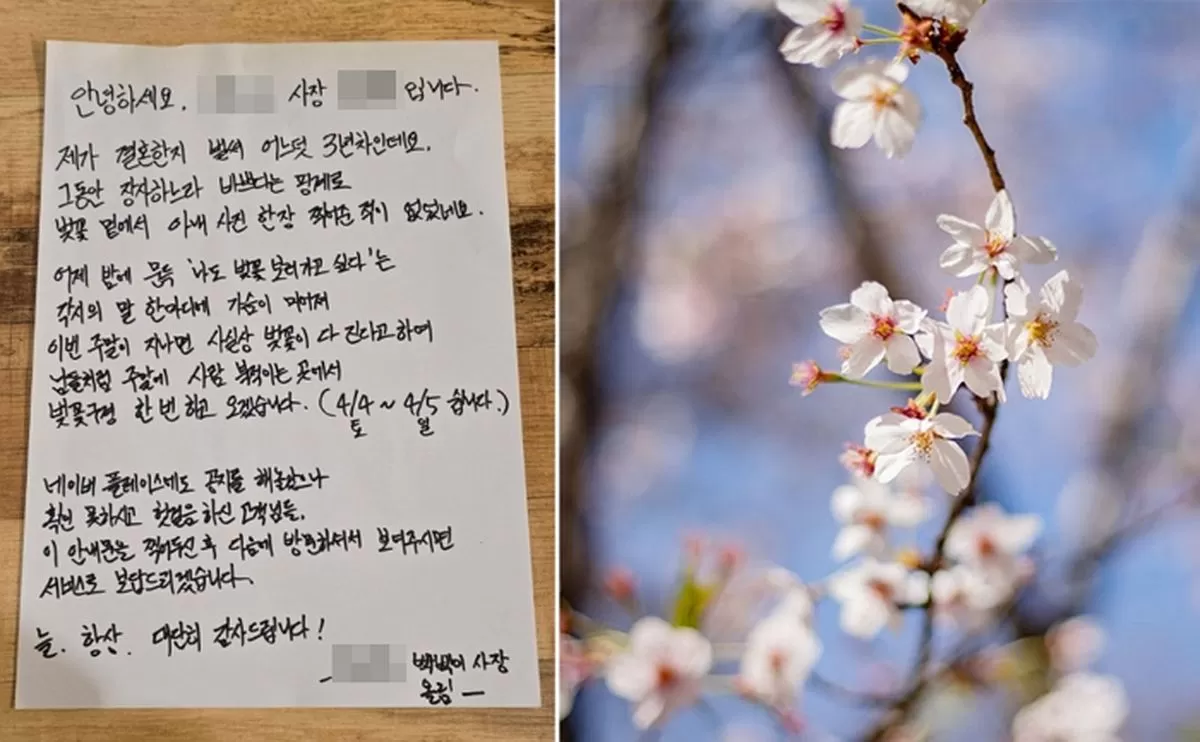 안녕하세요. 사장 입니다.
제가 결혼한지 벌써 어느덧 3년차인데요.
그동안 장사하느라 바쁘다는 핑계로
벚꽃 밑에서 아내 사진 한장 찍어준 적이 없었네요.
어제 밤에 문득 '나도 벚꽃 보러가고 싶다'는
각시의 말 한마디에 가슴이 미어져
이번 주말이 지나면 사실상 벚꽃이 다 진다고하여
남들처럼 주말에 사람 북적이는 곳에서
벚꽃구경 한 번 하고 오겠습니다. (4/4 ~ 4/5 쉽니다.)
토 일
네이버 플레이스에도 공지를 해놓았으나
혹여 못하시고 헛걸음 하신 고객님들,
이 안내문을 찍어두신 후 다음에 방문하셔서 보여주시면
서비스로 보답드리겠습니다.
늘. 항상. 대단히 감사드립니다!
- 사장
올림 -